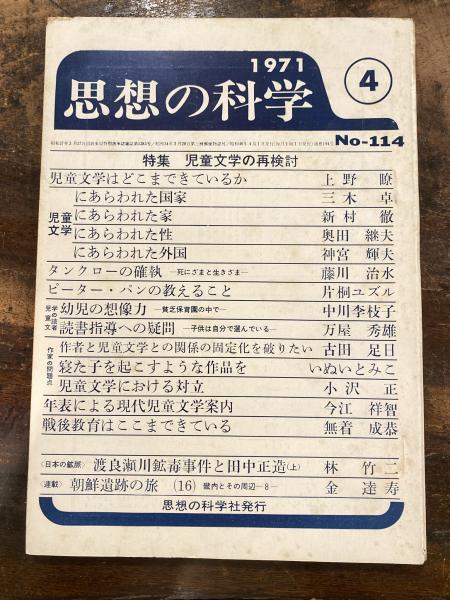 1971
4
思想の科学
No-114
特集 児童文学の再検討
児童文学はどこまできているか 上野 瞭
児童文学
にあらわれた国家 三木 卓
にあらわれた家 新村 徹
にあらわれた性 奥田 継夫
にあらわれた外国 神宮 輝夫
タンクローの確執 —死にざまと生きざま— 藤川 治水
ピーター・パンの教えること 片桐ユズル
幼児の想像力 —貧乏保育園の中で— 中川李枝子
読書指導への疑問 —子供は自分で選んでいる— 万屋 秀雄
作家の問題点
作者と児童文学との関係の固定化を破りたい 古田 足日
寝た子を起こすような作品を いぬいとみこ
児童文学における対立 小沢 正
年表による現代児童文学案内 今江 祥智
戦後教育はここまできている 無着 成恭
〈日本の鉱脈〉 渡良瀬川鉱毒事件と田中正造(上) 林 竹二
〈連載〉 朝鮮遺跡の旅 (16) 畿内とその周辺—8— 金 達寿
思想の科学社発行